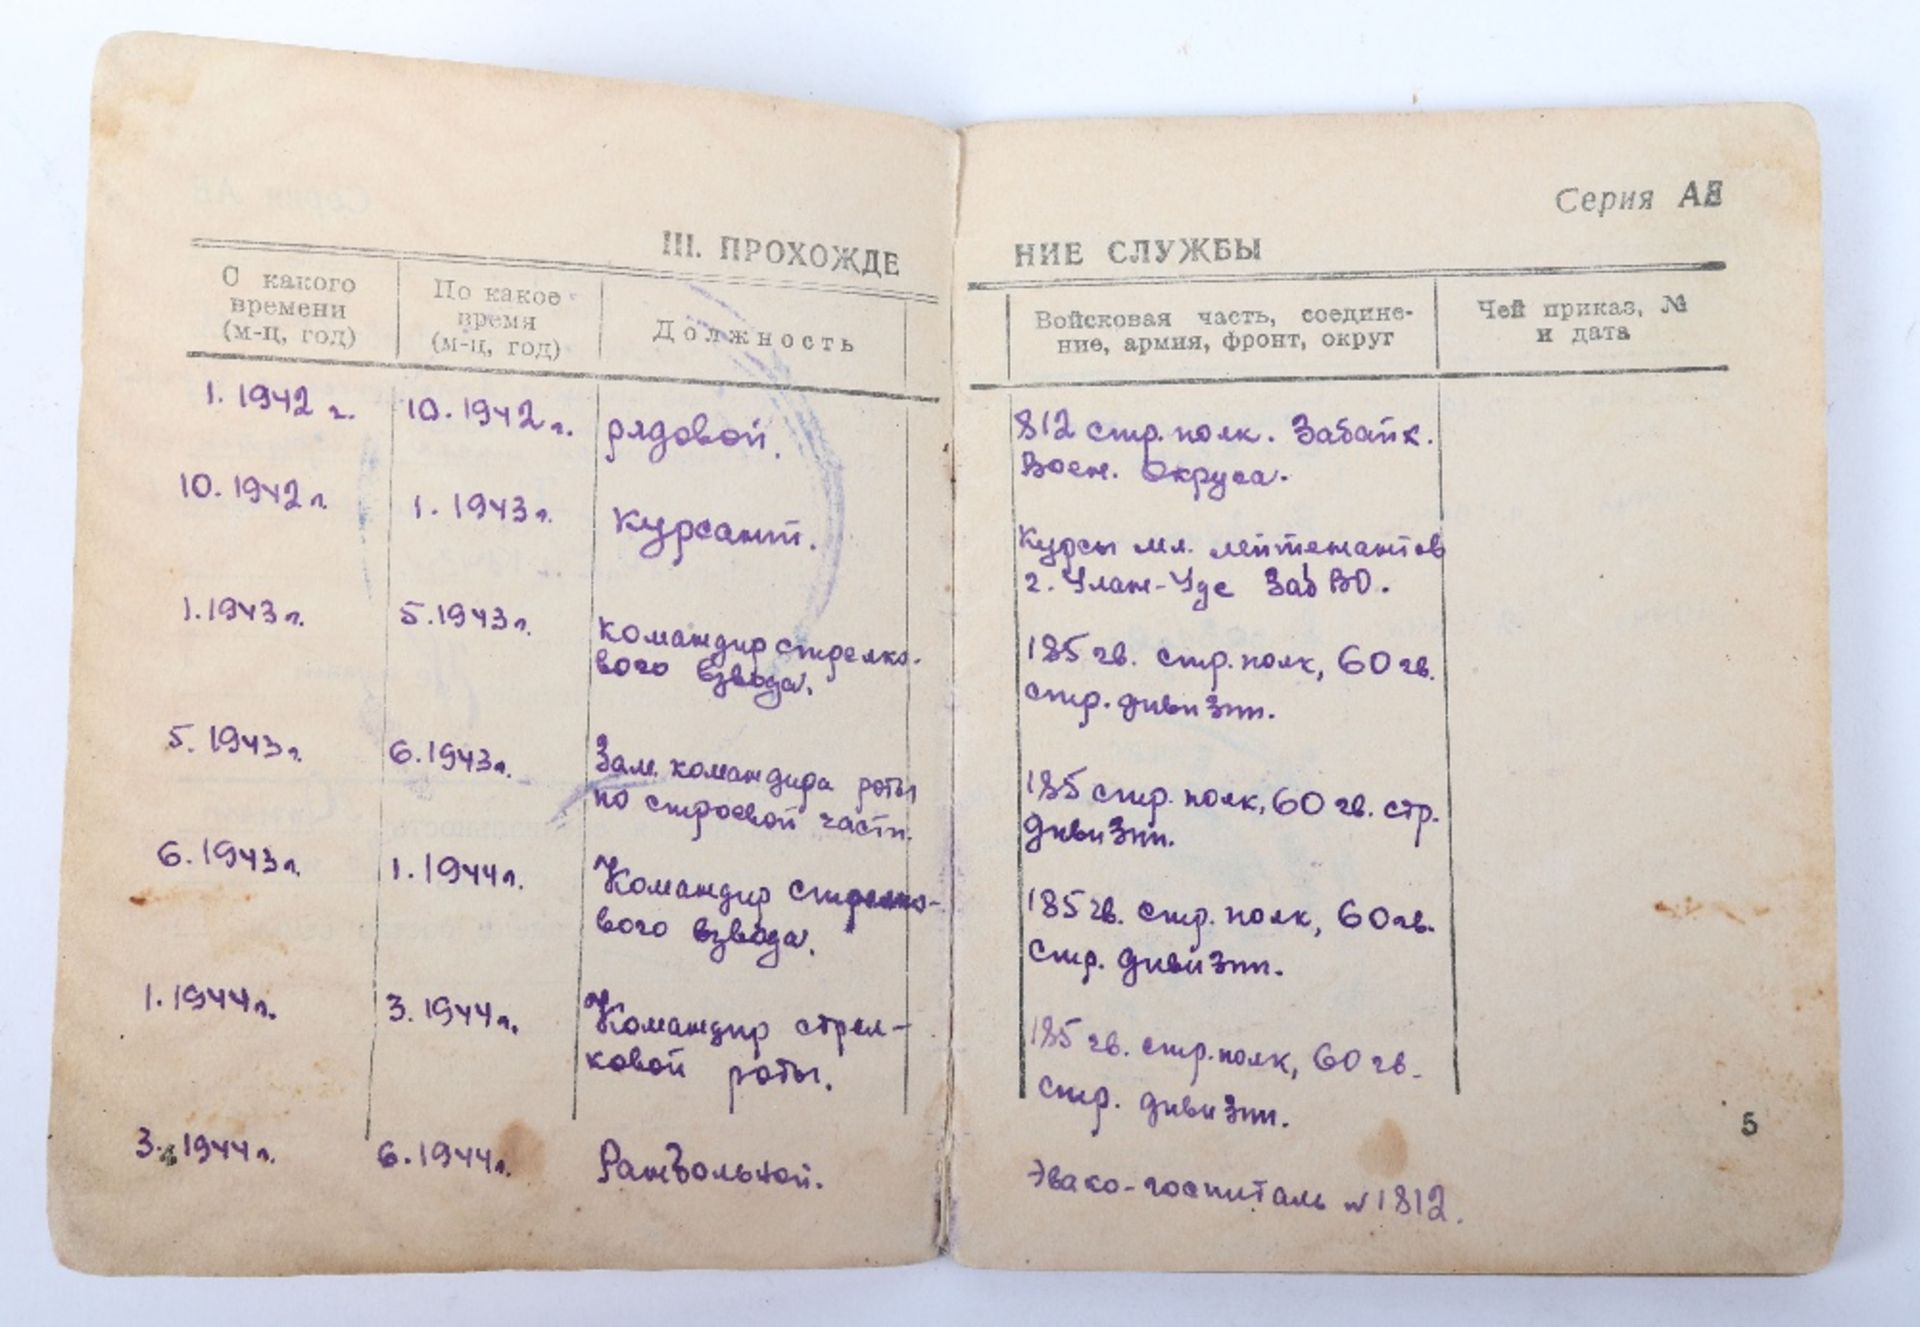 Серия АЕ
III. ПРОХОЖДЕ
НИЕ СЛУЖБЫ
С какого
времени
(м-ц, год)
По какое
время
(м-ц, год)
Должность
Войсковая часть, соедине-
ние, армия, фронт, округ
Чей приказ, №
и дата
1. 1942 г.
10. 1942 г.
рядовой.
812 стр. полк. Забайк.
Воен. Округа.
10. 1942 г.
1. 1943 г.
Курсант.
Курсы мл. лейтенантов
г. Улан-Удe ЗабВО.
1. 1943 г.
5. 1943 г.
командир стрелко-
вого взвода.
185 гв. стр. полк, 60 гв.
стр. дивизии.
5. 1943 г.
6. 1943 г.
Зам. командира роты
по строевой части.
185 стр. полк, 60 гв. стр.
дивизии.
6. 1943 г.
1. 1944 г.
Командир стрелко-
вого взвода.
185 гв. стр. полк, 60 гв.
стр. дивизии.
1. 1944 г.
3. 1944 г.
Командир стрел-
ковой роты.
185 гв. стр. полк, 60 гв.
стр. дивизии.
3. 1944 г.
6. 1944 г.
Ранбольной.
Эвако-госпиталь № 1812.
5